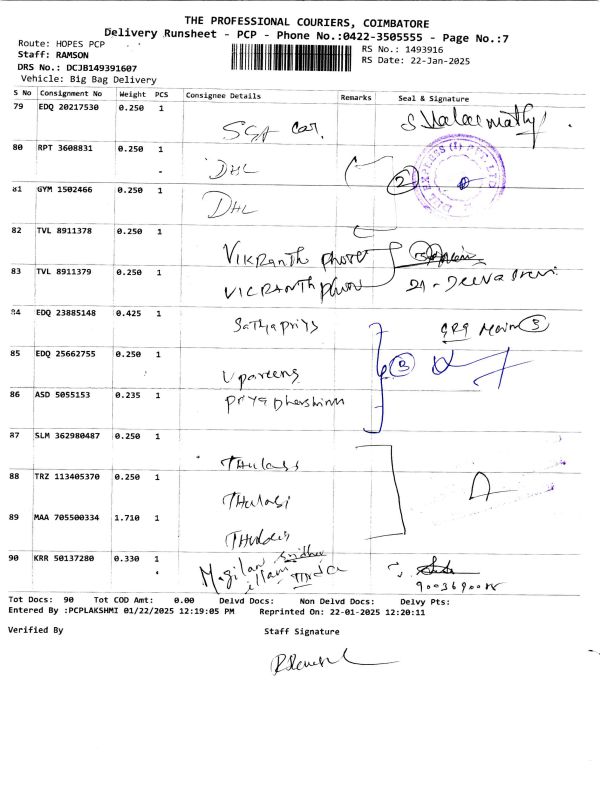 THE PROFESSIONAL COURIERS, COIMBATORE
Delivery Runsheet - PCP - Phone No.:0422-3505555 - Page No.:7
Route: HOPES PCP
RS No.: 1493916
Staff: RAMSON
RS Date: 22-Jan-2025
DRS No.: DCJB149391607
Vehicle: Big Bag Delivery
S No Consignment No Weight PCS Consignee Details Remarks Seal & Signature
79 EDQ 20217530 0.250 1 SGA Car.
80 RPT 3608831 0.250 1 DHL
2
81 GYM 1502466 0.250 1 DHL
82 TVL 8911378 0.250 1 VIKRANTH
83 TVL 8911379 0.250 1 VICRANTH
84 EDQ 23885148 0.425 1 Sathyapriya
85 EDQ 25662755 0.250 1
86 ASD 5055153 0.235 1 Priya Dharshinni
87 SLM 362980487 0.250 1 THulasi
88 TRZ 113405370 0.250 1 THulasi
89 MAA 705500334 1.710 1 THulasi
90 KRR 50137280 0.330 1 Magilan illam
Tot Docs: 90 Tot COD Amt: 0.00 Delvd Docs: Non Delvd Docs: Delvy Pts:
Entered By :PCPLAKSHMI 01/22/2025 12:19:05 PM Reprinted On: 22-01-2025 12:20:11
Verified By Staff Signature